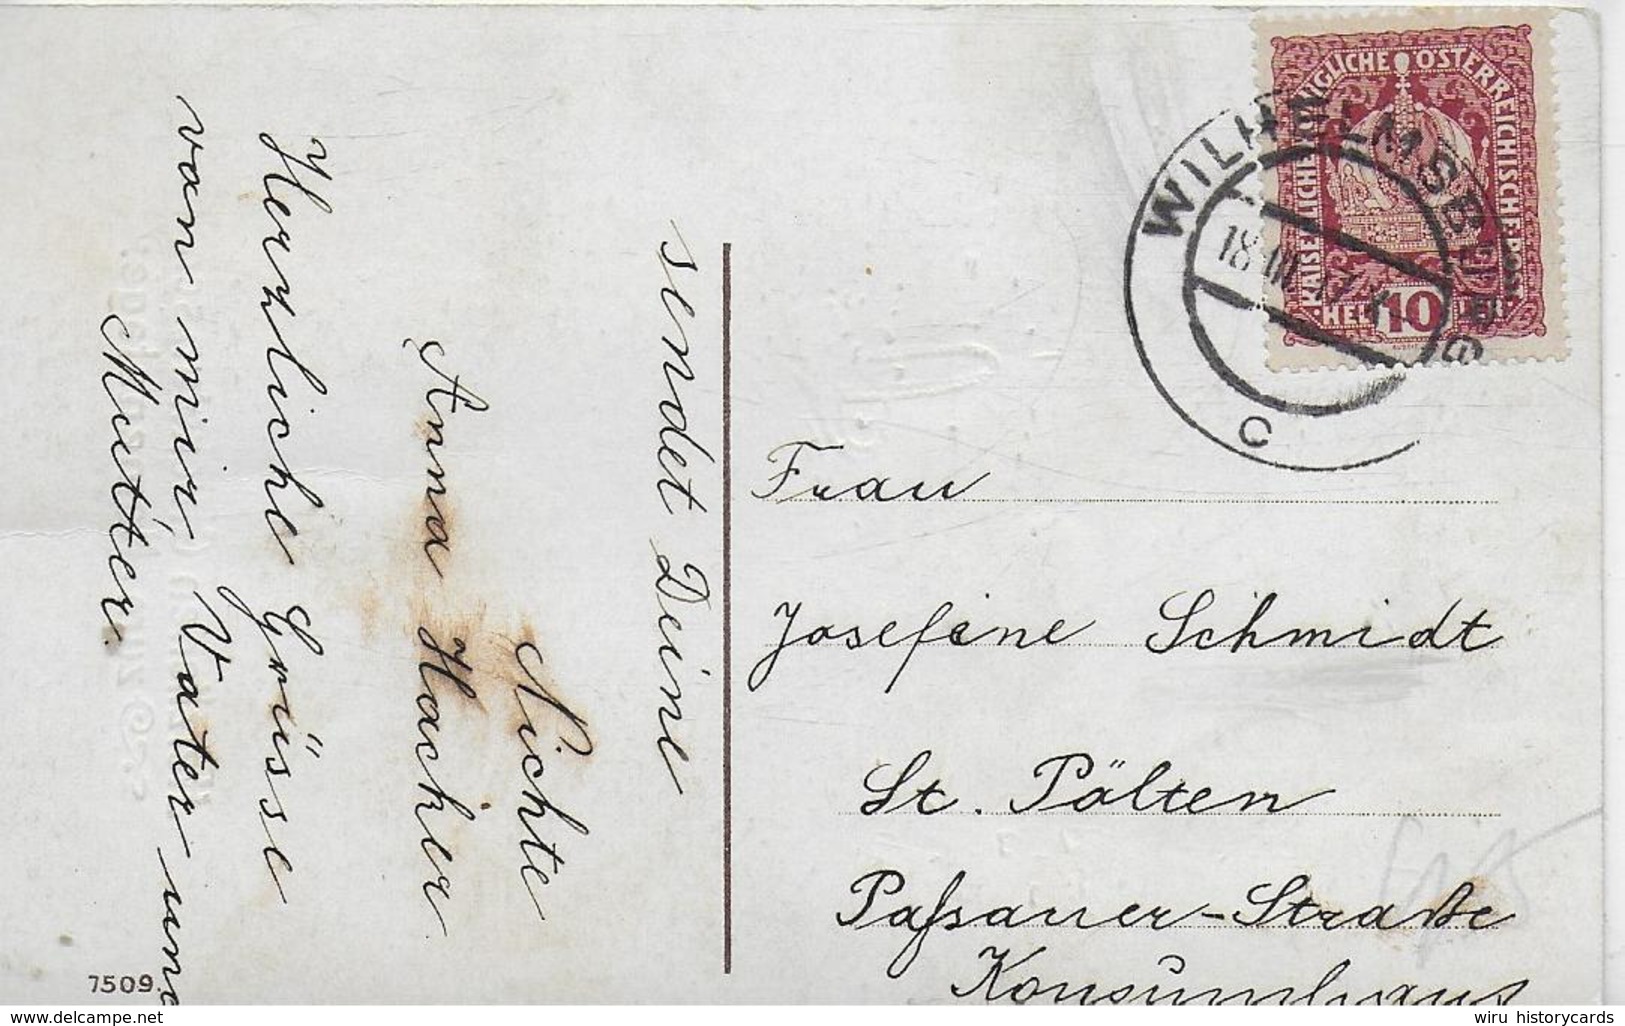 sendet Deine
Nichte
Anna Hacker
Herzliche Grüsse
von mir, Vater und
Mutter.
7509.
KAISERLICHE KÖNIGLICHE ÖSTERREICHISCHE POST
10
WILHELMSBURG
18. III. 17
c
Frau
Josefine Schmidt
St. Pölten
Paſsauer-Straße
Konsumhaus
delcampe.net
wiru historycards